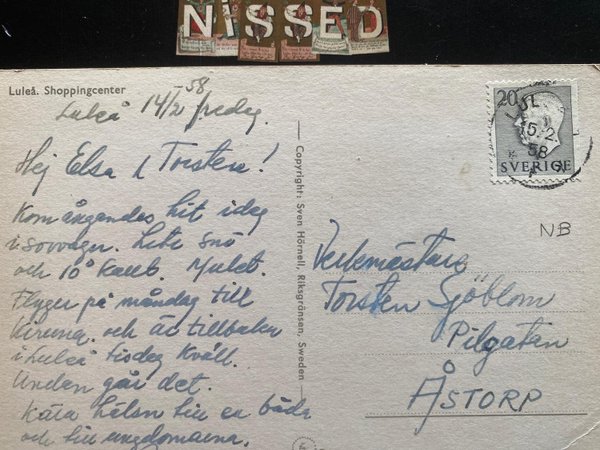 NISSED
Luleå. Shoppingcenter
Luleå 14/2 58 fredag.
Hej Elsa & Torsten!
Kom ångandes hit idag
i sovvagn. Lite snö
och 10° kallt. Mulet.
Flyger på måndag till
Kiruna och är tillbaka
i Luleå tisdag kväll.
Undan går det.
Kära hälsn till er båda
och till ungdomarna.
Copyright: Sven Hörnell, Riksgränsen, Sweden
20
15.2.
58
SVERIGE
NB
Verkmästare
Torsten Sjöblom
Pilgatan
ÅSTORP